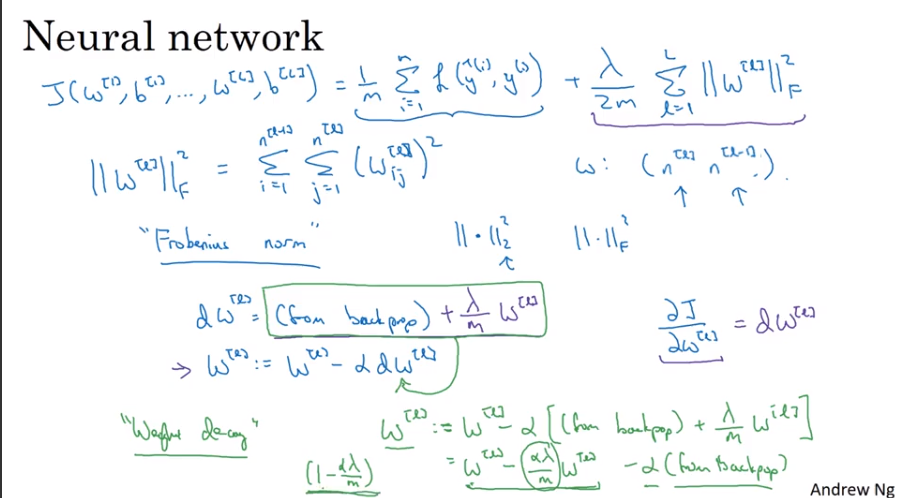 Neural network
J(ω^[1], b^[1], ..., ω^[L], b^[L]) = 1/m Σ_{i=1}^{n} ℒ(ŷ^(i), y^(i)) + λ/2m Σ_{l=1}^{L} ||W^[l]||_F^2
||W^[l]||_F^2 = Σ_{i=1}^{n^[l-1]} Σ_{j=1}^{n^[l]} (W_{ij}^[l])^2 ω: (n^[l] n^[l-1]).
"Frobenius norm" ||·||_2^2 ||·||_F^2
dW^[l] = (from backprop) + λ/m W^[l] ∂J/∂W^[l] = dW^[l]
→ W^[l] := W^[l] - α dW^[l]
"Weight decay" W^[l] := W^[l] - α [(from backprop) + λ/m W^[l]]
(1 - αλ/m) = W^[l] - (αλ/m) W^[l] - α (from Backprop)
Andrew Ng